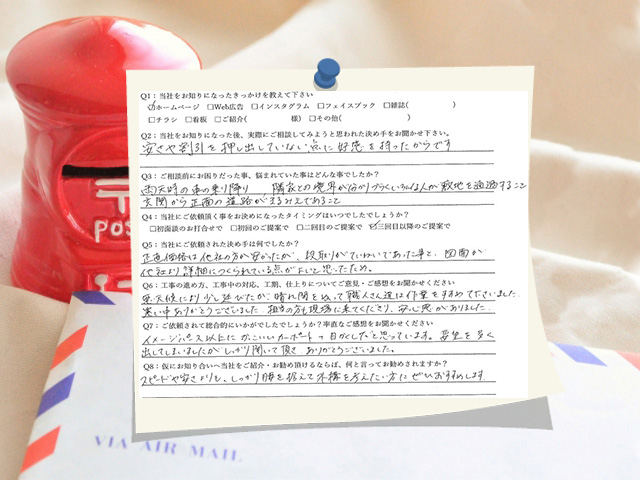 Q1：当社をお知りになったきっかけを教えて下さい
☑ホームページ □Web広告 □インスタグラム □フェイスブック □雑誌( )
□チラシ □看板 □ご紹介( 様) □その他( )
Q2：当社をお知りになった後、実際にご相談してみようと思われた決め手をお聞かせ下さい。
安さや割引を押し出していない点に好感を持ったからです
Q3：ご相談前にお困りだった事、悩まれていた事はどんな事でしたか？
雨天時の車の乗り降り、隣家との境界が分かりづらくいろんな人が敷地を通過すること
玄関から正面の道路がまるみえであること
Q4：当社にご依頼頂く事をお決めになったタイミングはいつでしたでしょうか？
□初面談のお打合せで □初回のご提案で □二回目のご提案で ☑三回目以降のご提案で
Q5：当社にご依頼された決め手は何でしたか？
正直価格は他社の方が安かったが、段取りがていねいであった事と、図面が
他社より詳細につくられている点がよいと思ったため。
Q6：工事の進め方、工事中の対応、工期、仕上りについてご意見・ご感想をお聞かせください
悪天候により少し延びたが、晴れ間をぬって職人さん達は作業をすすめて下さいました。
暑い中ありがとうございました。担当の方も現場に来てくださり、安心感がありました。
Q7：ご依頼されて総合的にいかがでしたでしょうか？率直なご感想をお聞かせください
イメージパース以上にかっこいいカーポートの目かくしだと思っています。要望を多く
出してしまいましたがしっかり聞いて頂き ありがとうございました。
Q8：仮にお知り合いへ当社をご紹介・お勧め頂けるならば、何と言ってお勧めされますか？
スピードや安さよりも、しっかり腰を据えて外構を考えたい方にぜひおすすめします。
POS
VIA AIR MAIL